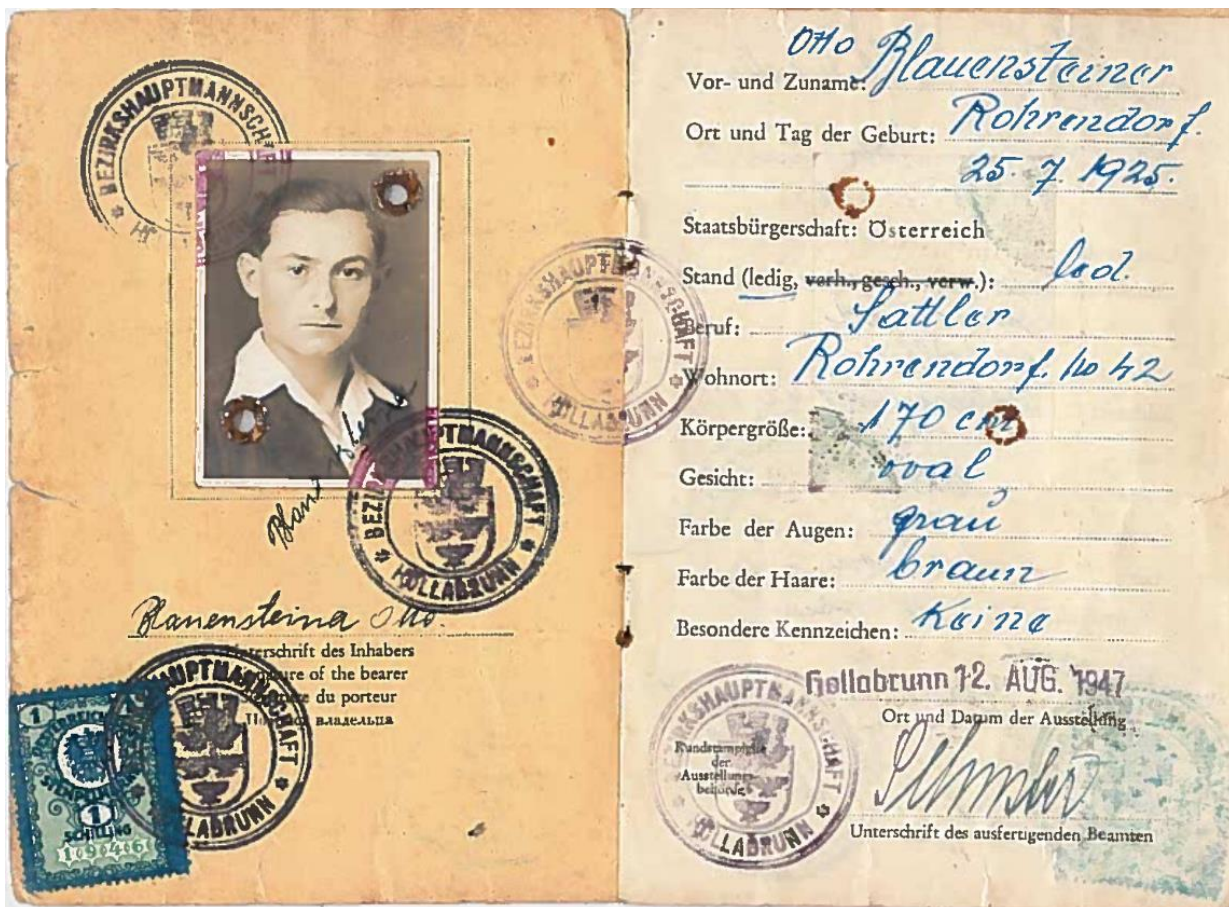 BEZIRKSHAUPTMANNSCHAFT
Blauensteiner Otto.
Unterschrift des Inhabers
Signature of the bearer
du porteur
владельца
BEZIRKSHAUPTMANNSCHAFT
HOLLABRUNN
BEZIRKSHAUPTMANNSCHAFT
HOLLABRUNN
REPUBLIK
1
SCHILLING
1946
BEZIRKSHAUPTMANNSCHAFT
HOLLABRUNN
Vor- und Zuname: Otto Blauensteiner
Ort und Tag der Geburt: Rohrendorf.
25. 7. 1925.
Staatsbürgerschaft: Österreich
Stand (ledig, verh., gesch., verw.): led.
Beruf: Sattler
Wohnort: Rohrendorf. No 42
Körpergröße: 170 cm
Gesicht: oval
Farbe der Augen: grau
Farbe der Haare: braun
Besondere Kennzeichen: Keine
Hollabrunn 12. AUG. 1947
Ort und Datum der Ausstellung
Rundstampiglie
der
Ausstellungs-
behörde
BEZIRKSHAUPTMANNSCHAFT
HOLLABRUNN
Unterschrift des ausfertigenden Beamten